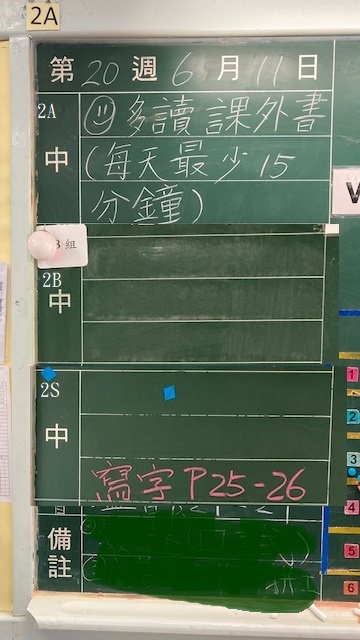 2A
第20週6月11日
2A
中
多讀課外書
(每天最少15
分鐘)
組
2B
中
2S
中
寫字P25-26
備註
1
2
3
4
5
6